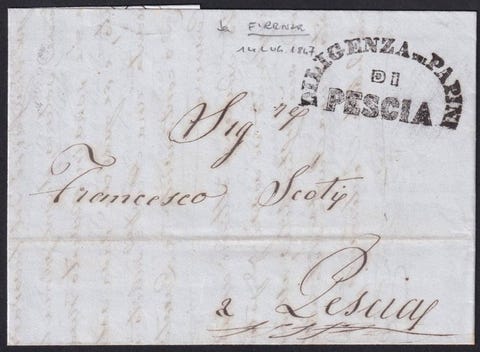 da FIRENZE
14 LUG. 1847
DILIGENZA DEI PAPINI
DI
PESCIA
Sig re
Francesco Scoti
a Pescia